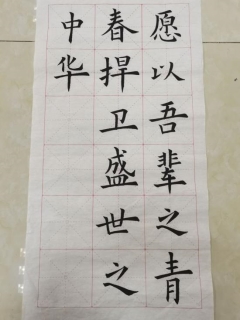 愿以吾辈之青
春捍卫盛世之
中华